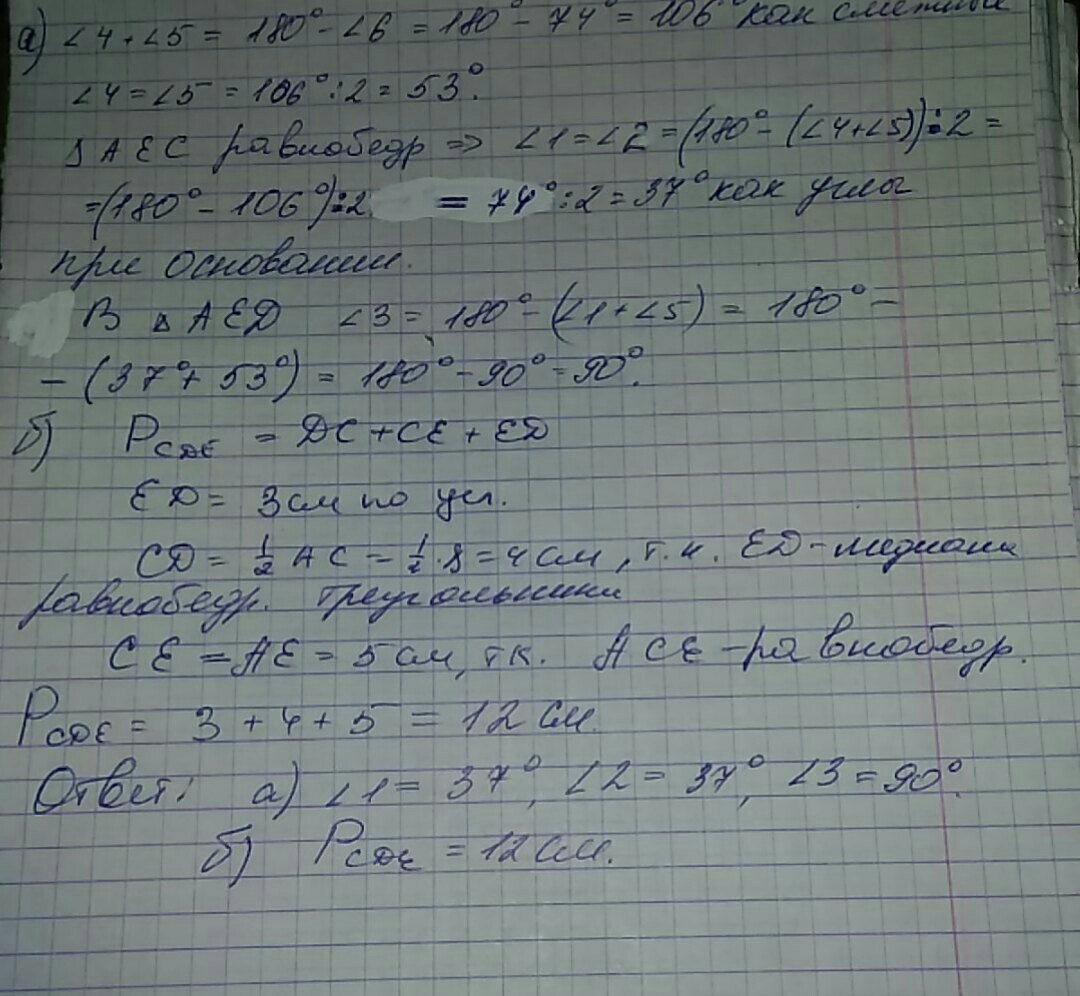 а) ∠4+∠5 = 180° - ∠6 = 180° - 74° = 106° как смежные
∠4 = ∠5 = 106° : 2 = 53°.
Δ AEC равнобедр => ∠1 = ∠2 = (180° - (∠4+∠5)) : 2 =
= (180° - 106°) : 2 = 74° : 2 = 37° как углы
при основании.
В Δ AED ∠3 = 180° - (∠1+∠5) = 180° -
- (37° + 53°) = 180° - 90° = 90°.
б) P CDE = DC + CE + ED
ED = 3 см по усл.
CD = 1/2 AC = 1/2 · 8 = 4 см, т.к. ED - медиана
равнобедр. треугольника
CE = AE = 5 см, т.к. ACE - равнобедр.
P CDE = 3 + 4 + 5 = 12 см.
Ответ: а) ∠1 = 37°, ∠2 = 37°, ∠3 = 90°.
б) P CDE = 12 см.